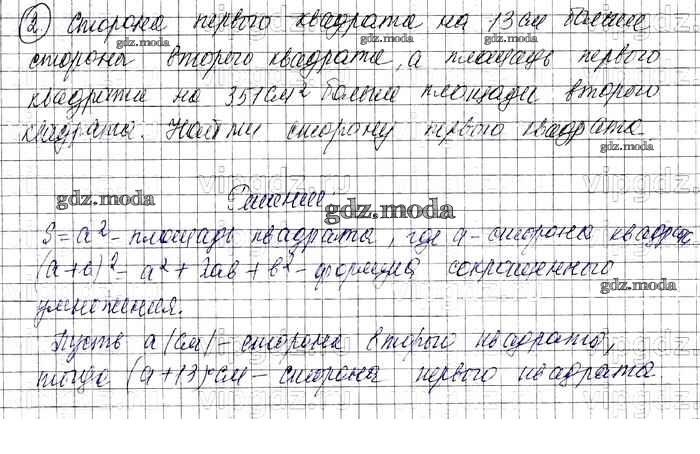 2 Сторона первого квадрата на 13 см больше
gdz.moda gdz.moda
стороны второго квадрата, а площадь первого
gdz.moda
квадрата на 351 см² больше площади второго
квадрата. Найти сторону первого квадрата.
gdz.moda gdz.moda
vipgdz.ru
gdz.moda Решение: gdz.moda
S = a² - площадь квадрата, где a - сторона квадрата
(a+в)² = a² + 2ав + в² - формула сокращенного
gdz.moda
умножения.
Пусть a (см) - сторона второго квадрата,
gdz.moda gdz.moda
тогда (a+13) см - сторона первого квадрата.
gdz.moda